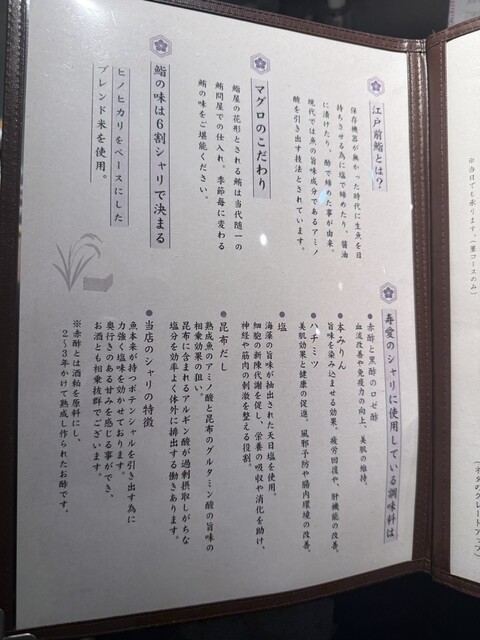 江戸前鮨とは？
保存機器が無かった時代に生魚を日
持ちさせる為に塩で締めたり、醤油
に漬けたり、酢で締めた事が由来。
現代では魚の旨味成分であるアミノ
酸を引き出す技法とされています。
マグロのこだわり
鮨屋の花形とされる鮪は当代随一の
鮪問屋での仕入れ。季節毎に変わる
鮪の味をご堪能ください。
鮨の味は6割シャリで決まる
ヒノヒカリをベースにした
ブレンド米を使用。
寿愛のシャリに使用している調味料は
●赤酢と黒酢のロゼ酢
血流改善や免疫力の向上、美肌の維持。
●本みりん
旨味を染み込ませる効果。疲労回復や、肝機能の改善。
●ハチミツ
美肌効果と健康の促進。風邪予防や腸内環境の改善。
●塩
海藻の旨味が抽出された天日塩を使用。
細胞の新陳代謝を促し、栄養の吸収や消化を助け、
神経や筋肉の刺激を整える役割。
●昆布だし
熟成魚のアミノ酸と昆布のグルタミン酸の旨味の
相乗効果の狙い。
昆布に含まれるアルギン酸が過剰摂取しがちな
塩分を効率よく体外に排出する働きあります。
●当店のシャリの特徴
魚本来が持つポテンシャルを引き出す為に
力強く塩味を効かせております。
奥行きのある甘みを感じる事ができ、
お酒とも相乗抜群でございます。
※赤酢とは酒粕を原料にし、
2〜3年かけて熟成し作られたお酢です。